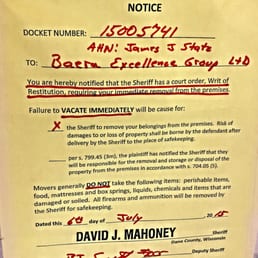 NOTICE
DOCKET NUMBER: 15005741
Attn: James J Statz
TO: Baera Excellence Group Ltd
You are hereby notified that the Sheriff has a court order, Writ of
Restitution, requiring your immediate removal from the premises.
Failure to VACATE IMMEDIATELY will be cause for:
X the Sheriff to remove your belongings from the premises. Risk of
damages to or loss of property shall be borne by the defendant after
delivery by the Sheriff to the place of safekeeping.
per s. 799.45 (3m), the plaintiff has notified the Sheriff that they
will be responsible for the removal and storage or disposal of the
property from the premises in accordance with s. 704.05 (5).
Movers generally DO NOT take the following items: perishable items,
food, mattresses and box springs, liquids, chemicals and items that are
damaged or soiled. All firearms and ammunition will be removed by
the Sheriff for safekeeping.
Dated this 6th day of July, 2015
DAVID J. MAHONEY Sheriff
Dane County, Wisconsin
Sheriff